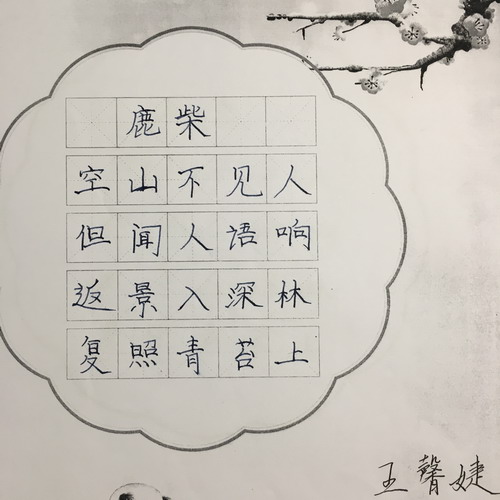 鹿柴
空山不见人
但闻人语响
返景入深林
复照青苔上
王馨婕